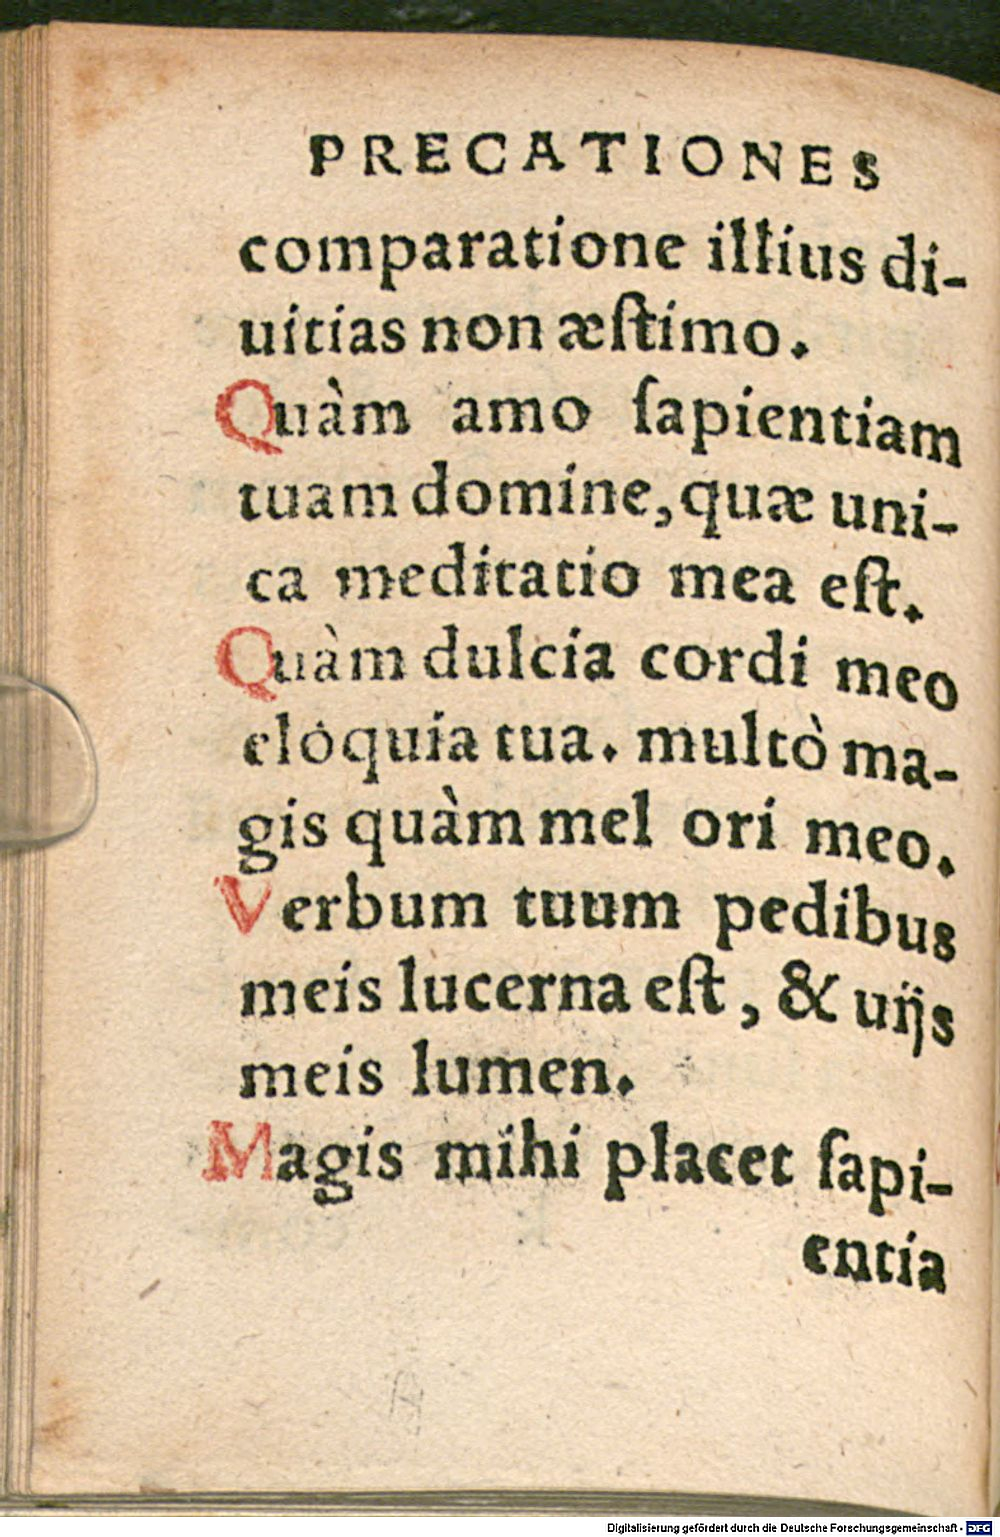 PRECATIONES
comparatione illius di-
uitias non æſtimo.
Quàm amo ſapientiam
tuam domine, quæ uni-
ca meditatio mea eſt.
Quàm dulcia cordi meo
eloquia tua. multò ma-
gis quàm mel ori meo.
Verbum tuum pedibus
meis lucerna eſt, & uijs
meis lumen.
Magis mihi placet ſapi-
entia
Digitalisierung gefördert durch die Deutsche Forschungsgemeinschaft - DFG